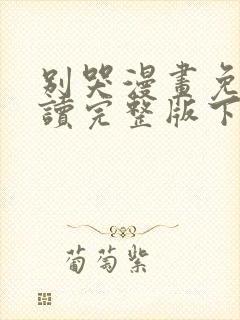 別哭漫畫免
讀完整版下
葡萄紫